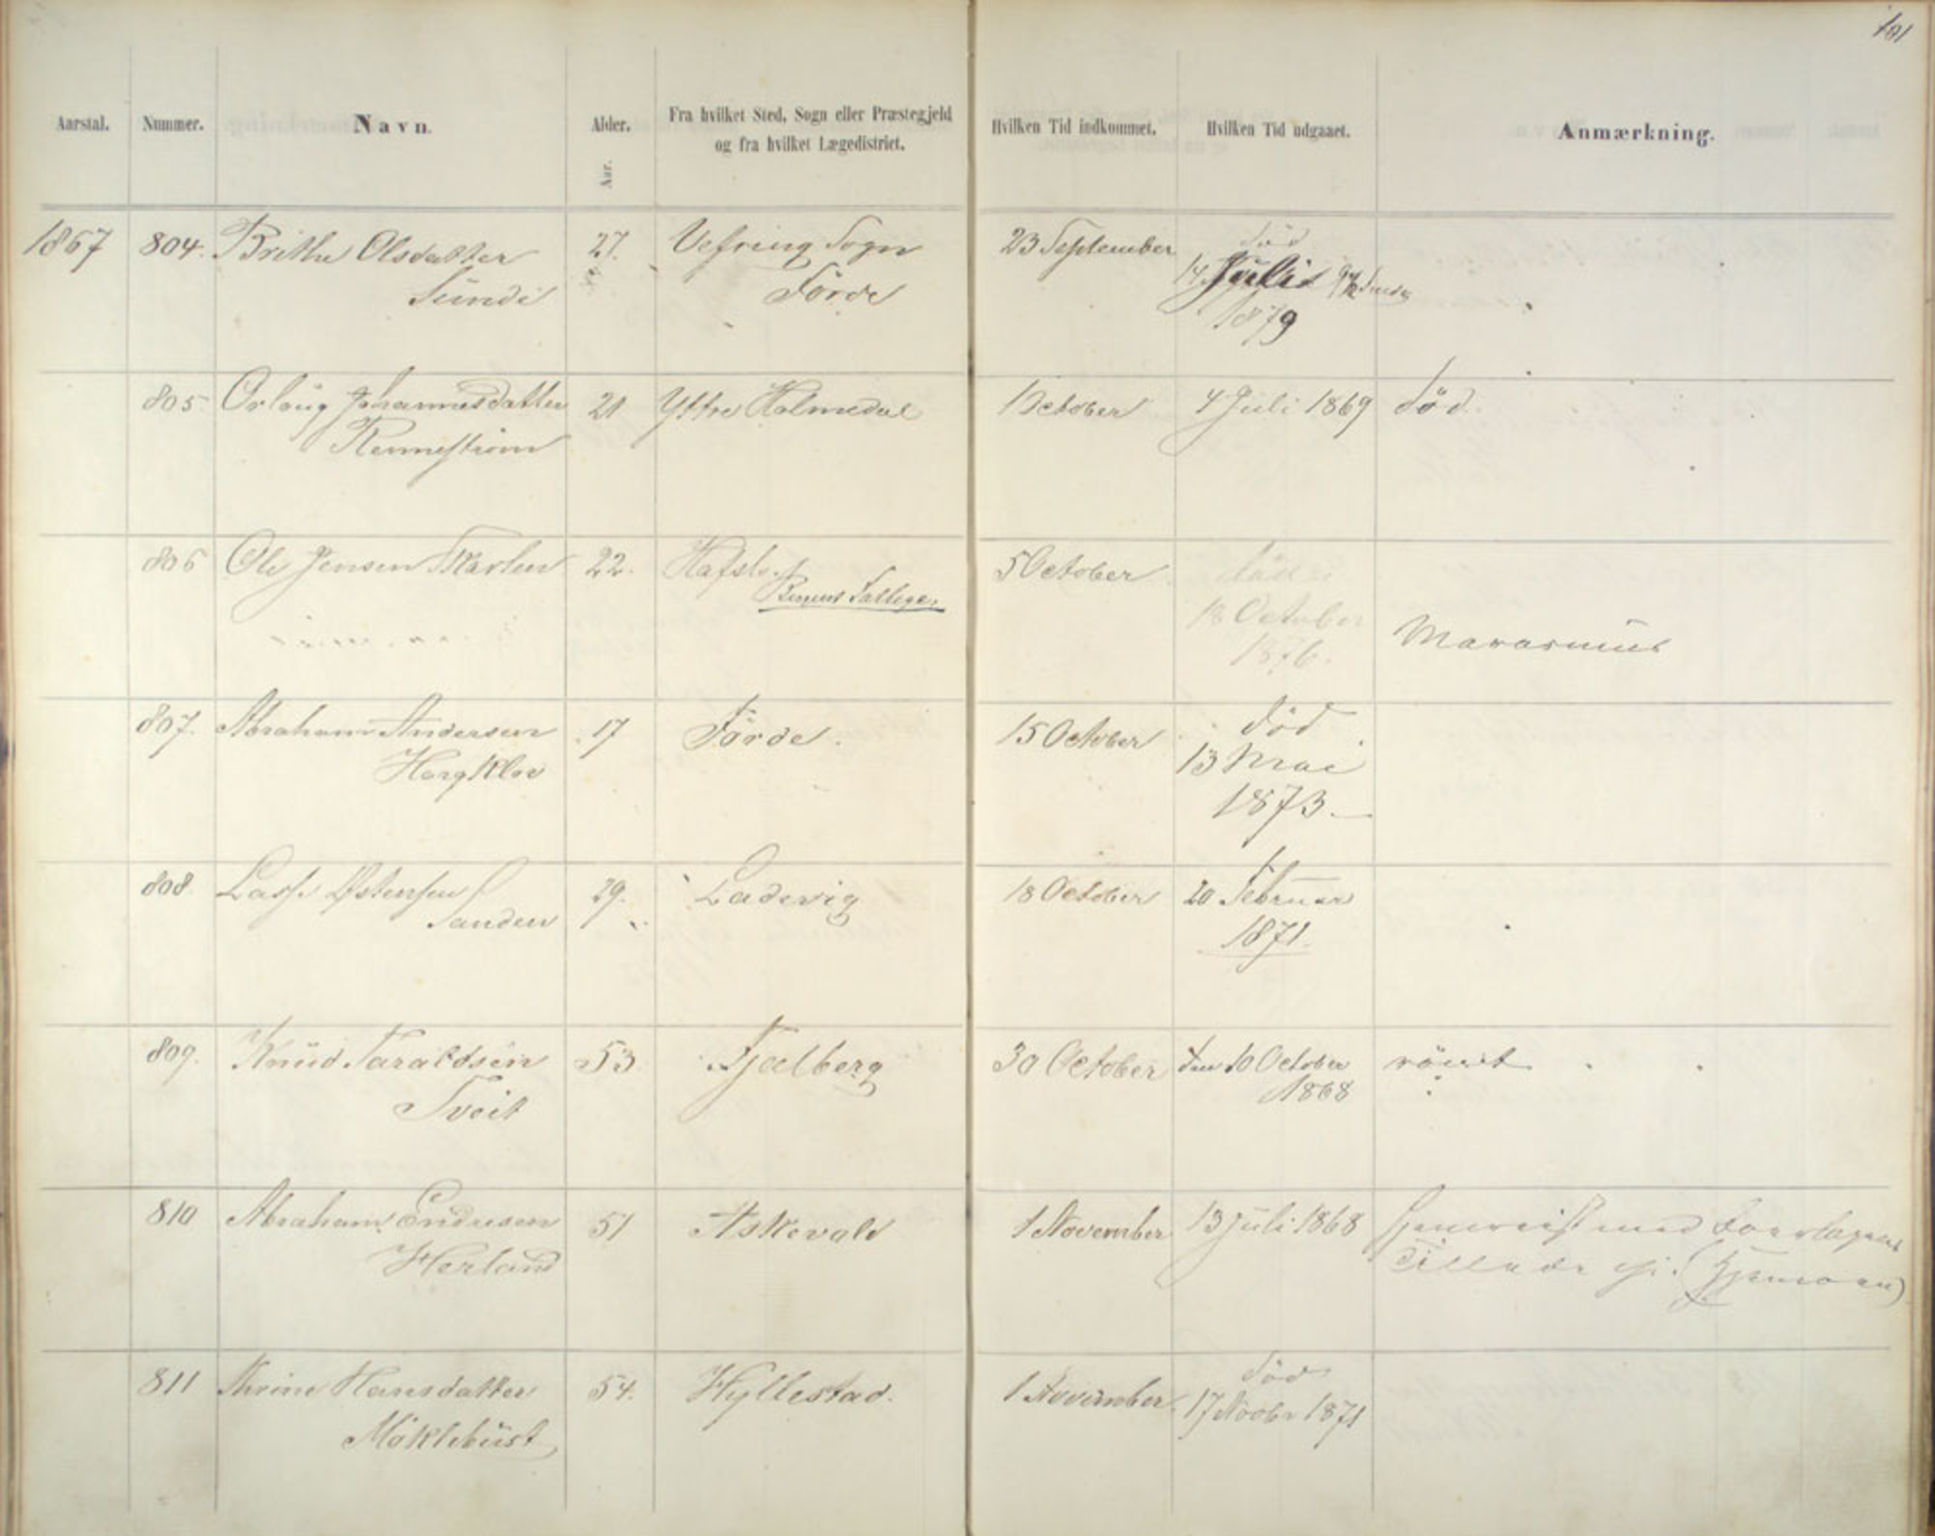 101
Aarstal.
Nummer.
Navn.
Alder.
Aar.
Fra hvilket Sted, Sogn eller Præstegjeld
og fra hvilket Lægedistrict.
Hvilken Tid indkommet.
Hvilken Tid udgaaet.
Anmærkning.
1867 804. Brithe Olsdatter 27. Vefring Sogn 23 September død
Sunde Førde 14 Juli
1879
805 Johannesdatter 21 Yttre Holmedal 1 October 4 Juli 1869 død
806 Ole Jensen 22. Hafslo 5 October død
18 October
1876.
Marasmus
807. Abraham Andersen 17 Førde. 15 October død
13 Mai
1873.
808 Lasse Østensen 29. Ladevig 18 October 20 Februar
Sanden 1871.
809. Knud Taraldsen 53 Fjelberg 30 October den 10 October rømt
Tveit 1868
810 Abraham Endresen 51 Askevold 1 November 13 Juli 1868 hjemreist med
Herland
811 Hansdatter 54. Hyllestad. 1 November død
Møklebust 17 Novbr 1871